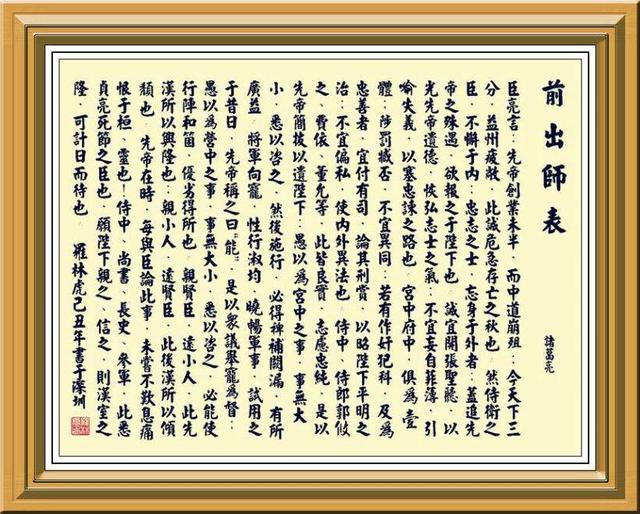 前出師表
諸葛亮
臣亮言：先帝創業未半，而中道崩殂；今天下三
分，益州疲敝，此誠危急存亡之秋也。然侍衛之
臣，不懈于內；忠志之士，忘身于外者：蓋追先
帝之殊遇，欲報之于陛下也。誠宜開張聖聽，以
光先帝遺德，恢弘志士之氣；不宜妄自菲薄，引
喻失義，以塞忠諫之路也。宮中府中，俱為壹
體；陟罰臧否，不宜異同：若有作奸犯科，及為
忠善者，宜付有司，論其刑賞，以昭陛下平明之
治；不宜偏私，使內外異法也。侍中、侍郎郭攸
之、費依、董允等，此皆良實，志慮忠純，是以
先帝簡拔以遺陛下：愚以為宮中之事，事無大
小，悉以咨之，然後施行，必得裨補闕漏，有所
廣益。將軍向寵，性行淑均，曉暢軍事，試用之
于昔日，先帝稱之曰“能”，是以眾議舉寵為督：
愚以為營中之事，事無大小，悉以咨之，必能使
行陣和，優劣得所也。親賢臣，遠小人，此先
漢所以興隆也；親小人，遠賢臣，此後漢所以傾
頹也。先帝在時，每與臣論此事，未嘗不歎息痛
恨于桓、靈也！侍中、尚書、長史、參軍，此悉
貞亮死節之臣也，願陛下親之、信之，則漢室之
隆，可計日而待也。 羅林虎己丑年書于深圳